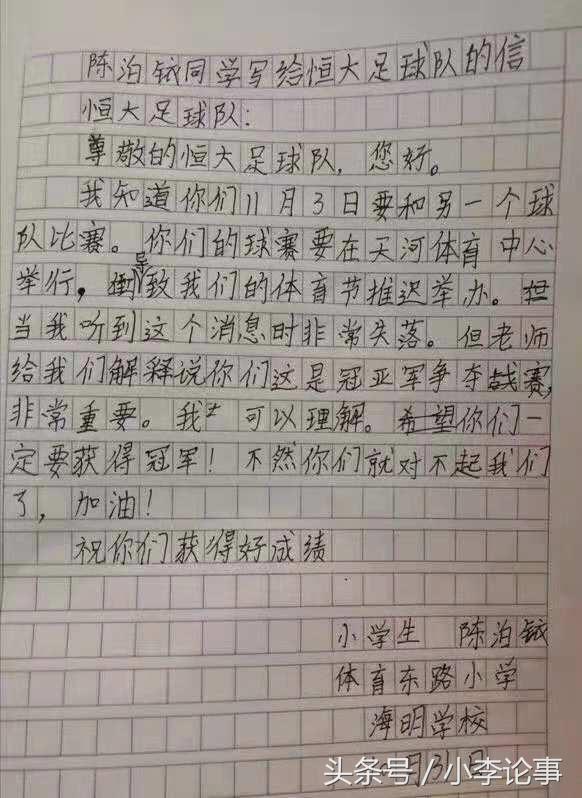 陈泊铱同学写给恒大足球队的信
恒大足球队:
尊敬的恒大足球队,您好。
我知道你们11月3日要和另一个球
队比赛。你们的球赛要在天河体育中心
举行,导致我们的体育节推迟举办。
当我听到这个消息时非常失落。但老师
给我们解释说你们这是冠亚军争夺战赛,
非常重要。我 可以理解。希望你们一
定要获得冠军!不然你们就对不起我们
了,加油!
祝你们获得好成绩
小学生 陈泊铱
体育东路小学
海明学校
月31日
头条号/小李论事